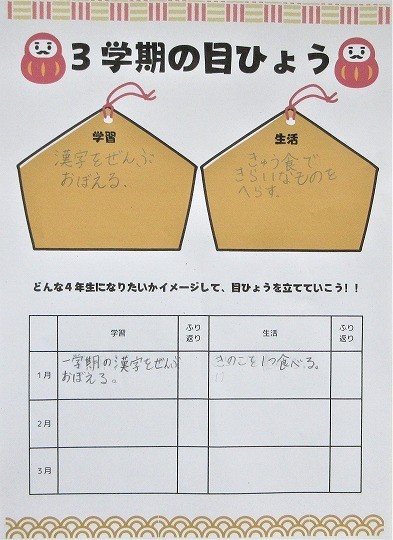 3学期の目ひょう
学習
漢字をぜんぶ
おぼえる.
生活
きゅう食で
きらいなものを
へらす。
どんな4年生になりたいかイメージして、目ひょうを立てていこう!!
学習 ふり返り 生活 ふり返り
1月 一学期の漢字をぜんぶ きのこを1つ食べる。
おぼえる。
2月
3月